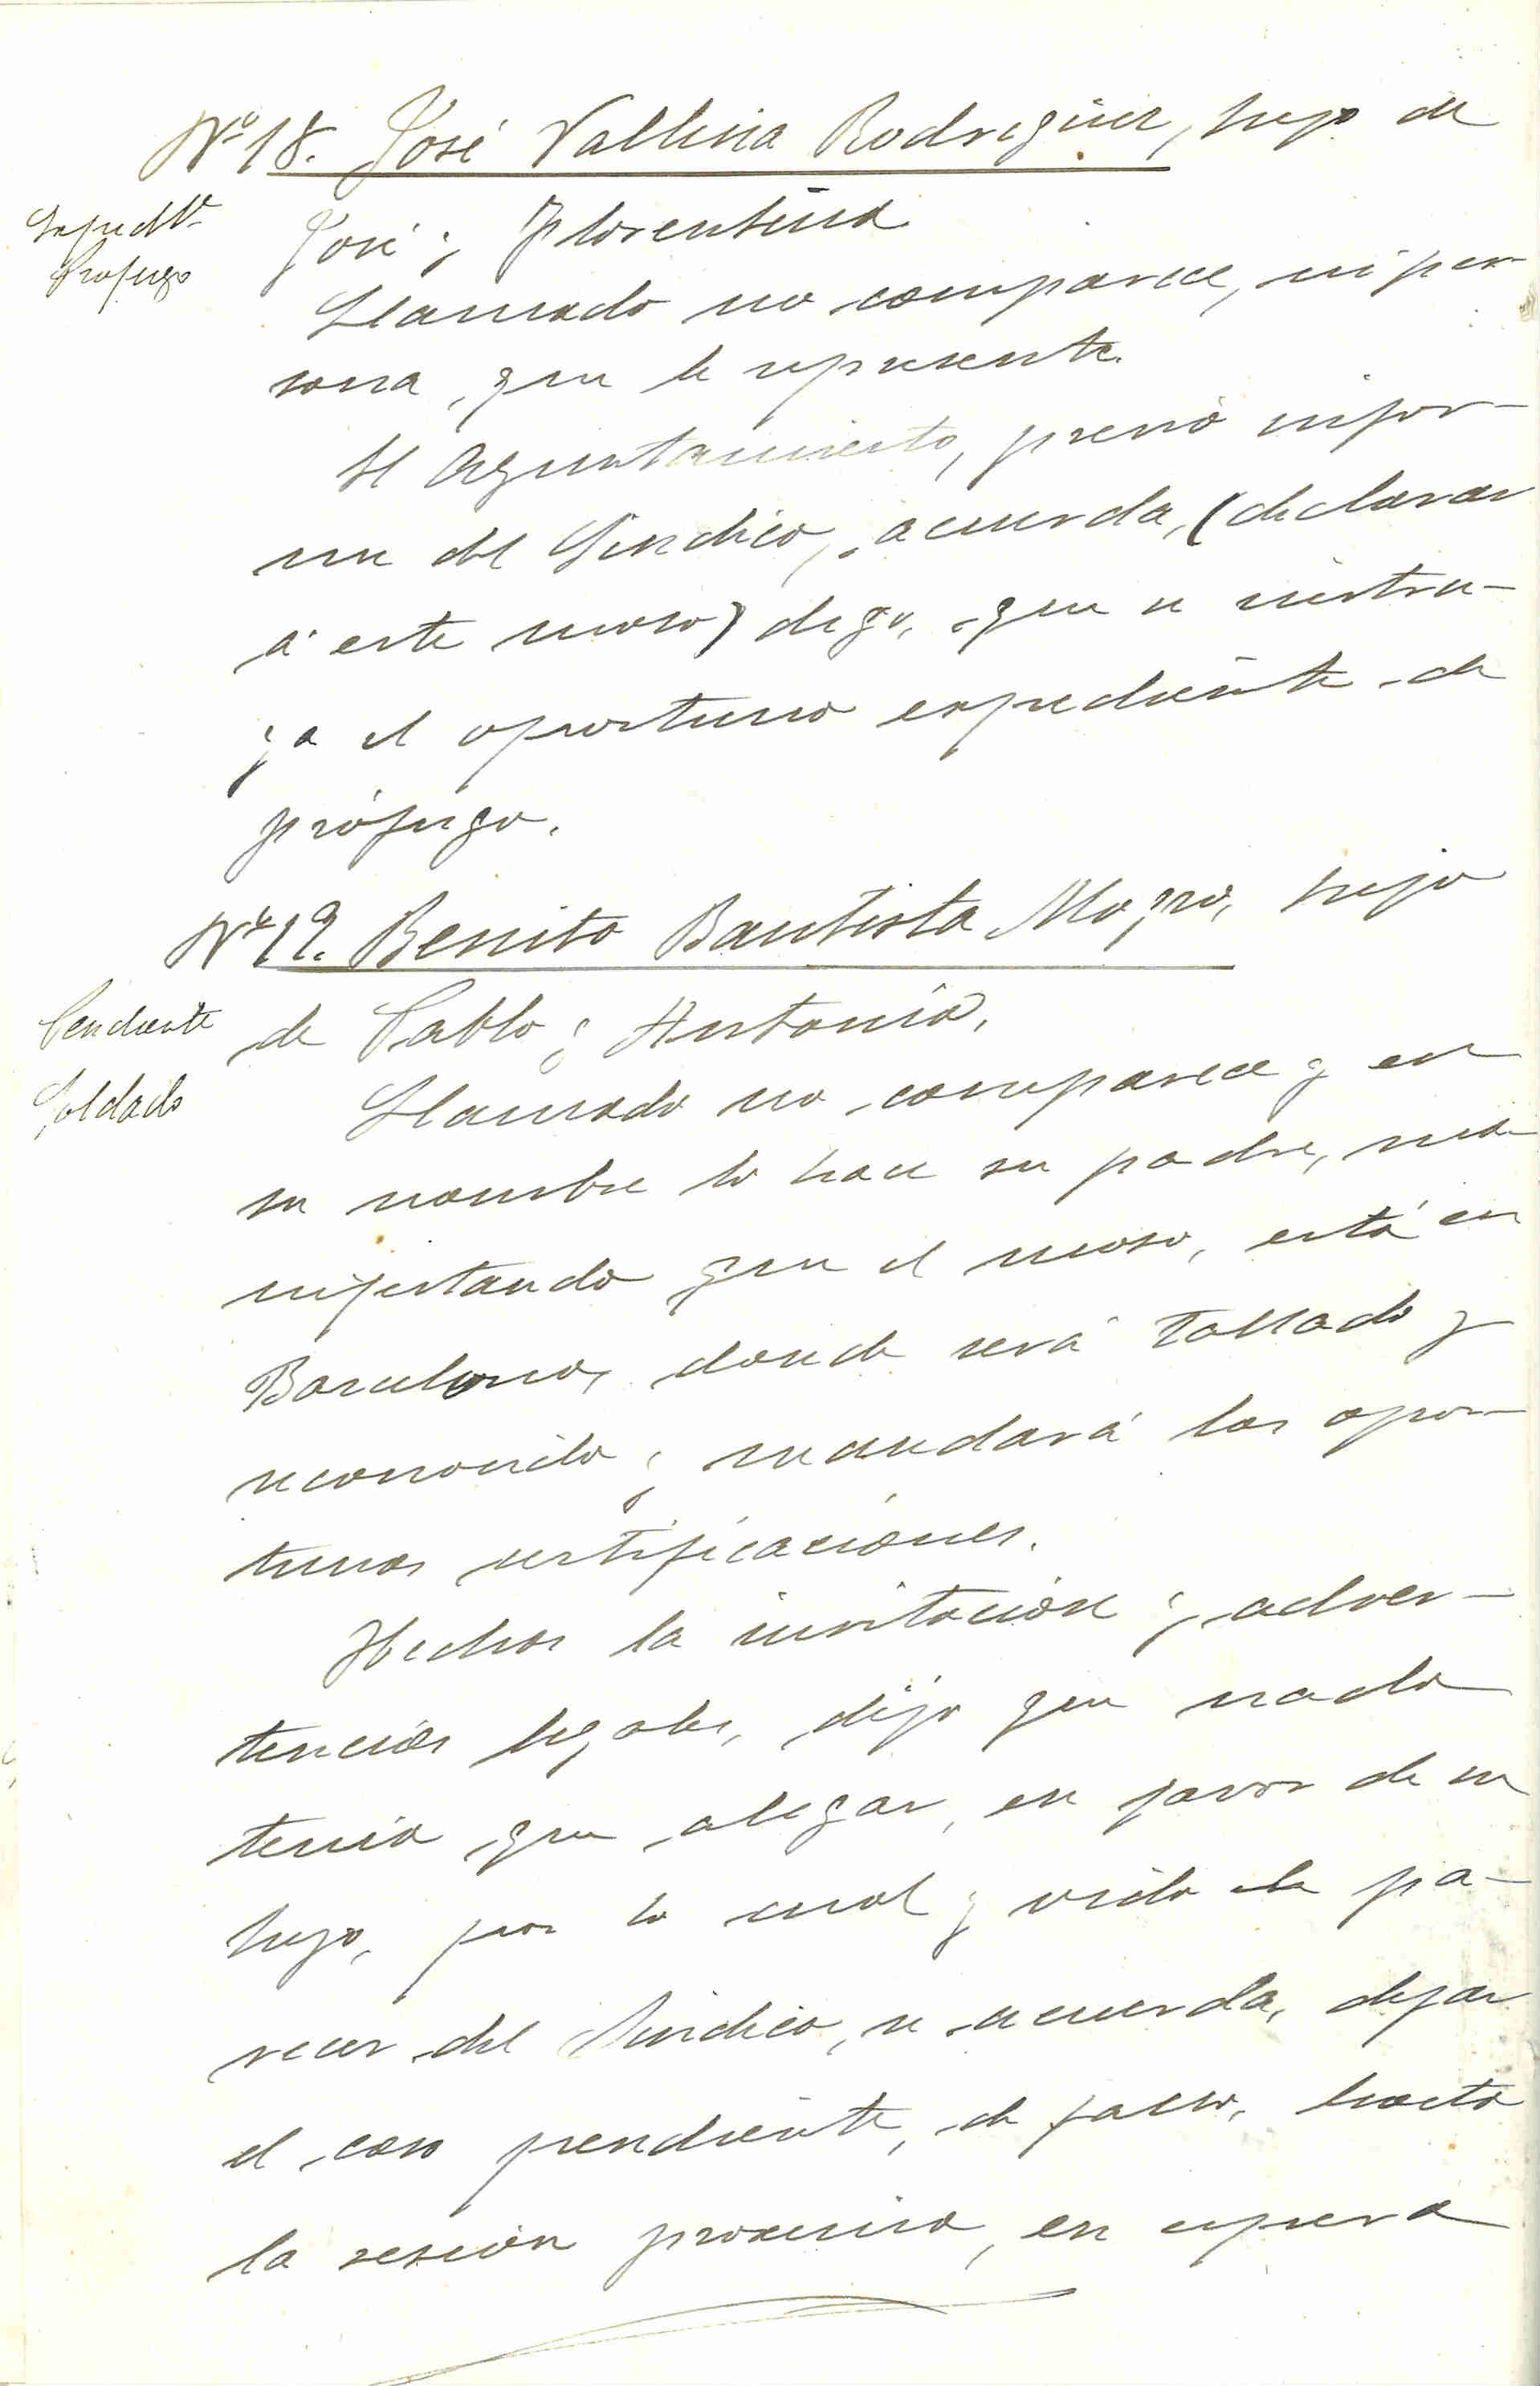 Nº 18. José Vallina Rodriguez, hijo de
Expedte
Prófugo
José y Florentina
Llamado no comparece, ni per-
sona, que le represente.
El Ayuntamiento, previo infor-
me del Síndico, acuerda, (declarar
á este mozo) digo, que se instru-
ya el oportuno expediente de
prófugo.
Nº 19. Benito Bautista Mozo, hijo
Pendiente
Soldado
de Pablo y Antonia.
Llamado no comparece y en
su nombre lo hace su padre, ma-
nifestando que el mozo, está en
Barcelona, donde será tallado y
reconocido y mandará las opor-
tunas certificaciones.
Hechas la invitación y adver-
tencias legales, dijo que nada
tenia que alegar, en favor de su
hijo, por lo cual y oido el pa-
recer del Síndico, se acuerda, dejar
el caso pendiente, de fallo, hasta
la sesión proxima, en espera